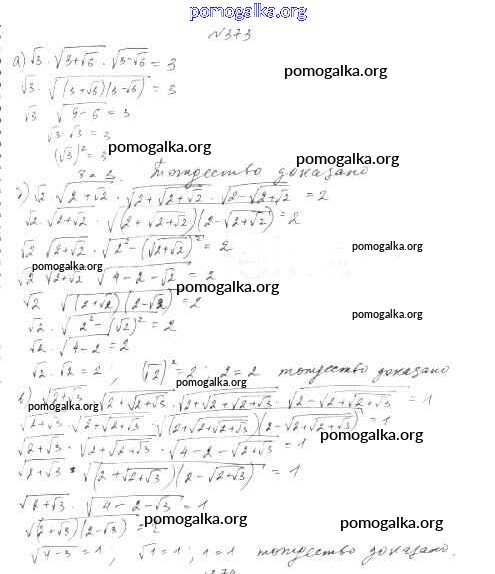 pomogalka.org
№373
а) √3 · √(3+√6) · √(3-√6) = 3
pomogalka.org
√3 · √((3+√6)(3-√6)) = 3
√3 √(9-6) = 3
√3 · √3 = 3
(√3)² = 3
pomogalka.org
3 = 3. Тождество доказано
√2 · √(2+√2) · √(2+√(2+√2)) · √(2-√(2+√2)) = 2
√2 · √(2+√2) · √((2+√(2+√2))(2-√(2+√2))) = 2
√2 · √(2+√2) · √(2²-(√(2+√2))²) = 2
pomogalka.org
pomogalka.org
√2 √(2+√2) √(4-2-√2) = 2
pomogalka.org
√2 √((2+√2)(2-√2)) = 2
√2 · √(2²-(√2)²) = 2
pomogalka.org
√2 · √(4-2) = 2
√2 · √2 = 2; (√2)² = 2; 2 = 2 тождество доказано
pomogalka.org
в) √(2+√3) · √(2+√(2+√3)) · √(2+√(2+√(2+√3))) · √(2-√(2+√(2+√3))) = 1
pomogalka.org
√(2+√3) · √(2+√(2+√3)) · √((2+√(2+√(2+√3)))(2-√(2+√(2+√3)))) = 1
pomogalka.org
√(2+√3) · √(2+√(2+√3)) · √(4-2-√(2+√3)) = 1
√(2+√3) · √((2+√(2+√3))(2-√(2+√3))) = 1
√(2+√3) · √(4-2-√3) = 1
pomogalka.org
pomogalka.org
√((2+√3)(2-√3)) = 1
√(4-3) = 1; √1 = 1; 1 = 1 тождество доказано.